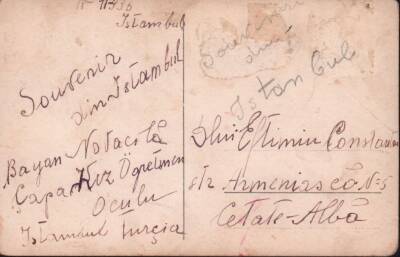 Istambul
Souvenir
din Istambul
Bayan Notacâlă
Çapa Kız Ögretmen
Oculu
Istambul Turçia
Souvenir
din
Istanbul
Dlui Eftimiu Constantin
str. Armeniască N=5
Cetate-Albă